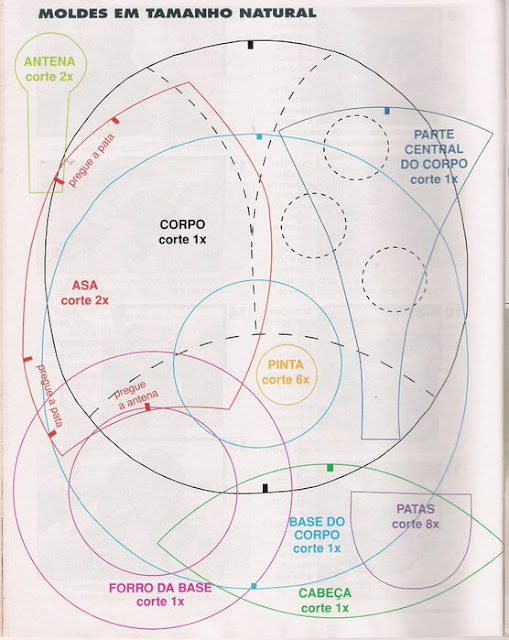 MOLDES EM TAMANHO NATURAL
ANTENA
corte 2x
pregue a pata
PARTE
CENTRAL
DO CORPO
corte 1x
CORPO
corte 1x
ASA
corte 2x
PINTA
corte 6x
pregue a pata
pregue
a antena
BASE DO
CORPO
corte 1x
PATAS
corte 8x
FORRO DA BASE
corte 1x
CABEÇA
corte 1x